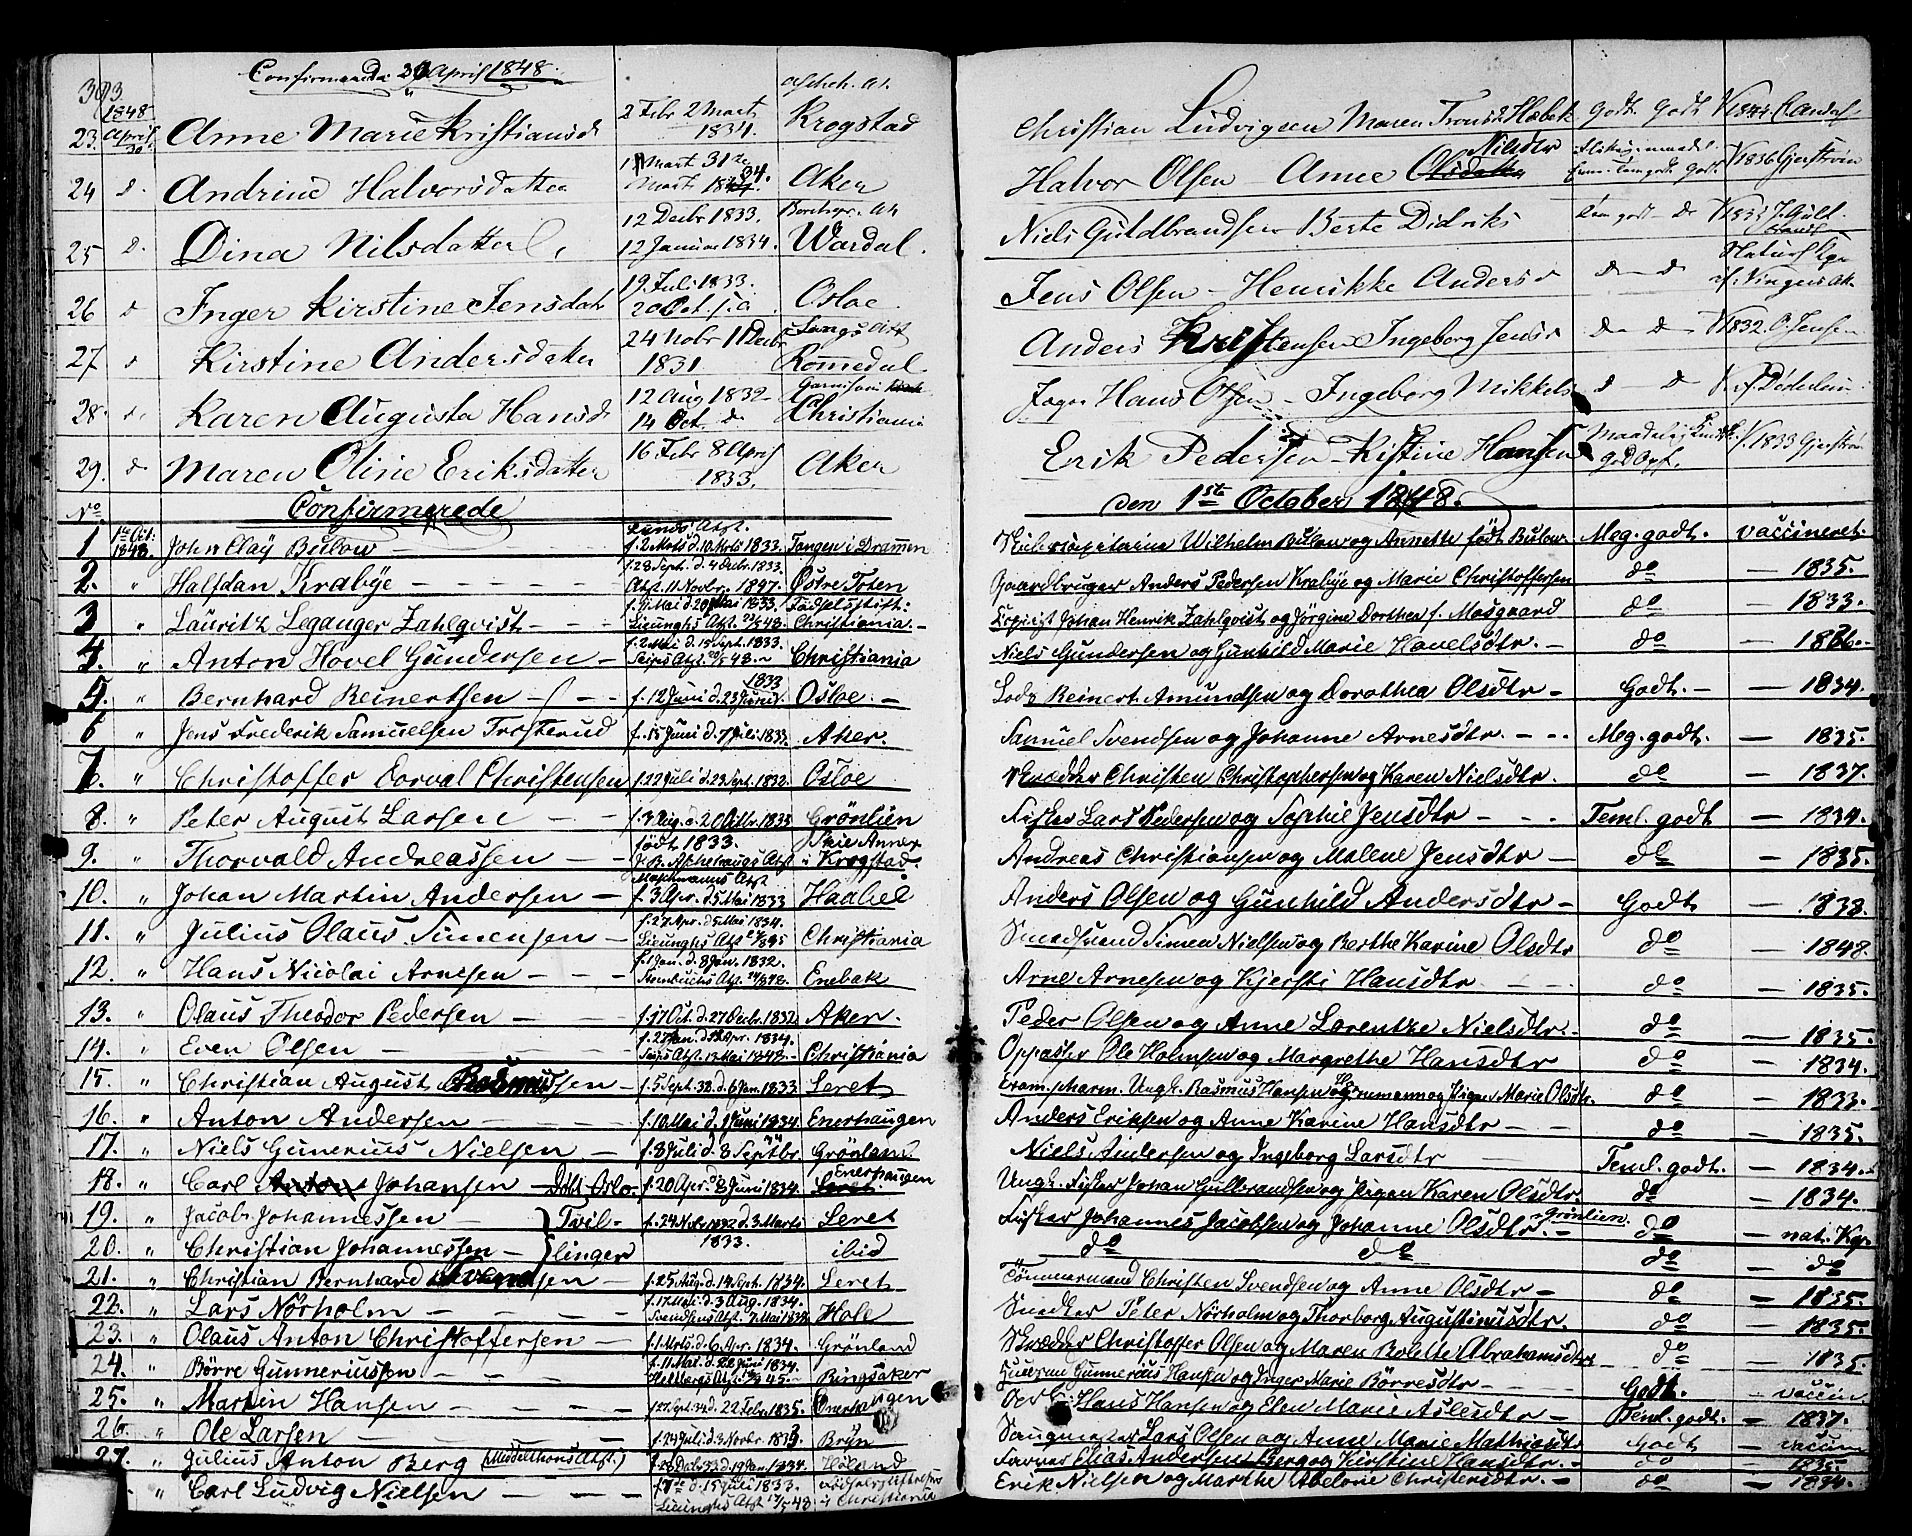 Confirmanda 30 April 1848.
1848
23. April 30 Anne Marie Kristiansd 2 Febr 2 Marts 1834. Krogstad
24 d. Andrine Halvorsdatter Mart 31te Mart 34. Aker
25 d. Dina Nilsdatter 12 Decbr 1833. 12 Januar 1834. Wardal.
26 d Inger Kirstine Jensdatr 19. Juli 1833. 20 Oct. s. a Osloe
27 d Kirstine Andersdatter 24 Nobr 11 Decbr 1831. Romedal
28. d. Karen Augusta Hansd 12 Aug 1832 14 Oct. d Garnisons Christiania
29. d Maren Oline Eriksdatter 16 Febr 8 April 1833. Aker
No Confirmerede
1 1ste Oct: 1848. John Claÿ Bülow — f. 2 Marts d. 10 Marts 1833. Tangen i Drammen
2. " Halfdan Krabÿe f. 28 Septr. d. 4 Decbr. 1833. Østre Toten
3 " Lauritz Leganger Zahlqvist f. 9 Mai d. 20 Mai 1833. Fødselsstift: Christiania.
4. " Anton Hovel Gundersen f. 2 Mai d. 15 Sept. 1833. Christiania
5. " Bernhard Reinertsen f. 12 Juni d. 23 Juni 1833 Osloe
6 " Jens Frederik Samuelsen Trosterud f. 15 Juni d. 7 Juli 1833. Aker.
7. " Christoffer Dorval Christensen f. 22 Juli d. 23 Sept. 1832. Osloe
8. " Peter August Larsen f. 3 Aug. d. 20 Octbr. 1833 Grönlien
9. " Thorvald Andreassen født 1833. Skie Annex i Krogstad.
10. " Johan Martin Andersen f. 3 Apr. d. 5 Mai 1833 Haabel
11. " Julius Olaus Simensen f. 27 Apr. d. 5 Mai 1834. Christiania
12. " Hans Nicolai Arnesen f. 1 Jan. d. 8 Jan. 1832. Enebak
13. " Olaus Theodor Pedersen f. 17 Oct. d. 27 Decbr. 1832 Aker.
14. " Even Olsen Christiania
15. " Christian August Rasmussen f. 5 Sept. 32. d. 6 Jan. 1833 Leret
16. " Anton Andersen f. 10 Mai d. 1 Juni 1834. Enerhaugen
17. " Niels Gunerius Nielsen f. 8 Juli d. 8 Septbr. Grönland
18. " Carl Anton Johansen Døbt Oslo f. 20 Apr. d. 8 Juni 1834. Enerhaugen Leret
19. " Jacob Johannessen — Tvil- f. 24 d. 3 Marts Leret
20. " Christian Johannessen — linger 1833. ibid
21. " Christian Bernhard f. 25 Aug. d. 14 Sept. 1834. Leret
22. " Lars Nörholm f. 17 Mai d. 3 Aug. 1834. Hole
23. " Olaus Anton Christoffersen f. 1 Marts d. 6 Apr. 1834. Grönland
24. " Börre Gunneriussen f. 11 Mai. d. 22 Juni 1834. Ringsaker
25. " Martin Hansen f. 27 Sept. 34 d. 22 Febr. 1835. Enerhaugen
26. " Ole Larsen f. 24 Juli d. 3 Novbr. 1833 Bryn
27. " Julius Anton Berg (Middelthons Atst.) Höland
" Carl Ludvig Nielsen d. 15 Juli 1833. i Christiania
Christian Ludvigsen Maren Godt Godt V 1844
Halvor Olsen – Anne Olsdatter Nilsdtr Godt. V 1836
Niels Guldbrandsen Berte Didriks Tem godt – d
Jens Olsen – Henrikke Andersd d – d
Anders Kristensen Ingeborg Jensd d – d V 1832 O. Jensen
Hans Olsen – Ingeborg Mikkels d – d
Erik Pedersen – Kistine Hansen V. 1833
den 1ste October 1848.
Wilhelm Bülow og Annette født Bülow Meg. godt. vaccineret.
Gaardbruger Anders Pedersen Krabÿe og Marie Christoffersen do — 1835.
Kopiist Johan Henrik Zahlqvist og Jörgine Dorthea f. Mosgaard do — 1833.
Niels Gundersen og Gunhild Marie Hovelsdtr. — do
Lods Reinert Amundsen og Dorothea Olsdtr — Godt. — 1834.
Samuel Svendsen og Johanne Arnesdtr. Meg. godt. — 1835.
Skrædder Christen Christophersen og Karen Nielsdtr. do — 1837.
Fisker Lars Pedersen og Sophie Jensdtr Teml. godt — 1834.
Andreas Christiansen og Malene Jensdtr — do — 1835.
Anders Olsen og Gunhild Andersdtr — Godt — 1838.
Smedsvend Simen Nielsen og Berthe Karine Olsdtr do — 1848.
Arne Arnesen og Kjersti Hansdtr do — 1835.
Peder Olsen og Anne Lorentze Nielsdtr. do — 1835.
Oppasser Ole Holmsen og Margrethe Hansdtr do — 1834.
Exam. pharm. Ungk. Rasmus Hansen og Pigen Marie Olsdtr. do — 1833.
Anders Eriksen og Anne Karine Hansdtr — do — 1835.
Niels Andersen og Ingeborg Larsdtr — Teml. godt. — 1834.
Ungk. Fisker Johan Gulbrandsen og Pigen Karen Olsdtr. do — 1834.
Fisker Johannes Jacobsen og Johanne Olsdtr. Grönlien. — do — nat. Kp.
do do do — do
Tömmermand Christen Svendsen og Anne Olsdtr — do — 1835.
Snedker Peter Nörholm og Thorborg Augustinusdtr. do — 1835.
Skrædder Christoffer Olsen og Maren Bolette Abrahamsdtr do — 1835.
Gunnerius Hansen og Inger Marie Börresdtr — Godt. — vaccin.
Hans Hansen og Elen Marie Aslesdtr — Teml. godt. — 1837.
Saugmester Lars Olsen og Anne Marie Mathisdtr Godt — vaccin
Farver Elias Andersen Berg og Kirstine Hansdtr. — do — 1835
Erik Nielsen og Marthe Abelone Christensdtr. — do